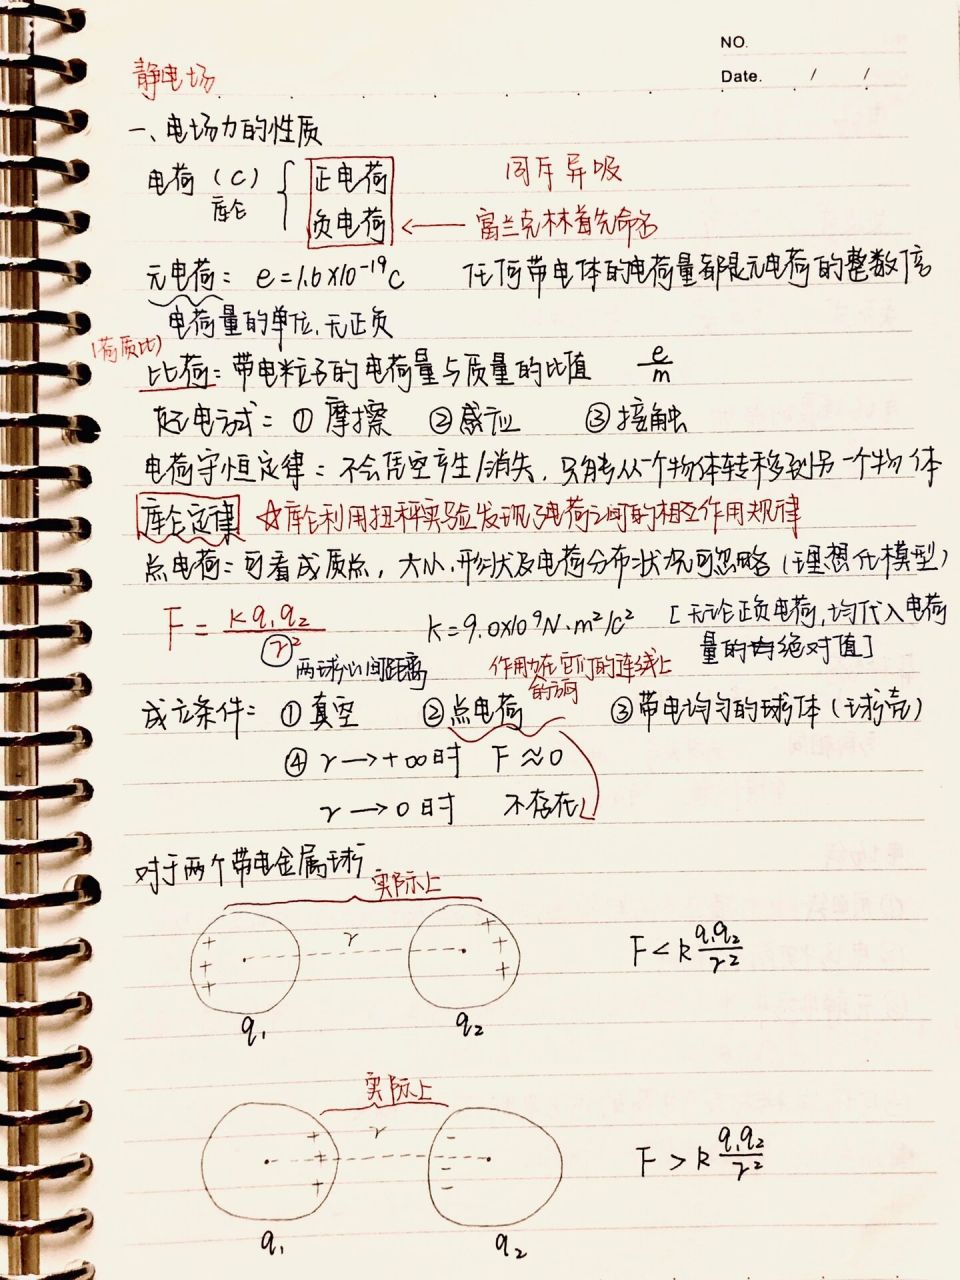 NO.
Date. / /
静电场
一、电场力的性质
电荷(C) { 正电荷 同斥异吸
库仑 负电荷 ← 富兰克林首先命名
元电荷: e=1.6×10⁻¹⁹C 任何带电体的电荷量都是元电荷的整数倍
电荷量的单位,无正负
(荷质比)
比荷: 带电粒子的电荷量与质量的比值 e/m
起电方式: ① 摩擦 ②感应 ③接触
电荷守恒定律: 不会凭空产生/消失,只能从一个物体转移到另一个物体
库仑定律 ☆库仑利用扭秤实验发现了电荷之间的相互作用规律
点电荷: 可看成质点, 大小,形状及电荷分布状况可忽略(理想化模型)
F=kq₁q₂/r² k=9.0×10⁹N·m²/C² [无论正负电荷,均代入电荷
量的绝对值]
两球心间距离 作用力在它们的连线上
的方向
成立条件: ①真空 ②点电荷 ③带电均匀的球体(球壳)
④ r→+∞时 F≈0
r→0时 不存在
对于两个带电金属球
实际上
+ r +
+ + F<k q₁q₂/r²
+ +
q₁ q₂
实际上
+ r -
+ - F>k q₁q₂/r²
+ -
q₁ q₂